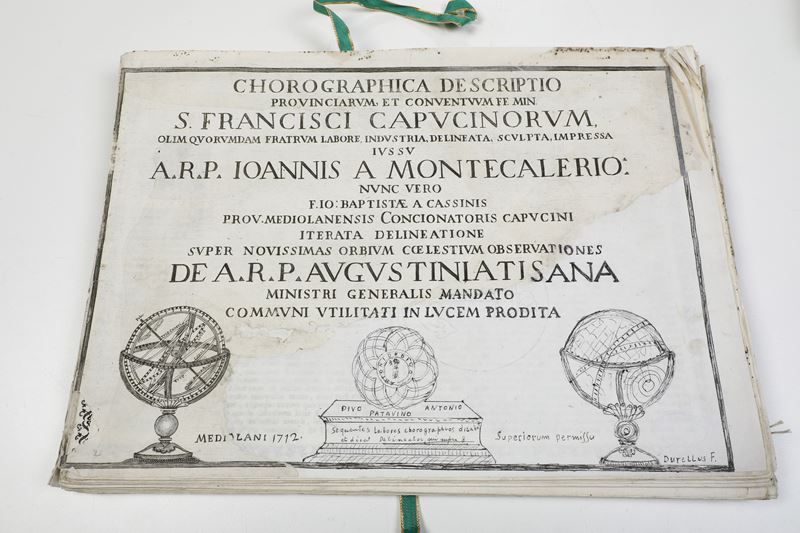 CHOROGRAPHICA DESCRIPTIO
PROVINCIARVM, ET CONVENTVVM FE MIN.
S. FRANCISCI CAPVCINORVM,
OLIM QVORVMDAM FRATRVM LABORE, INDVSTRIA, DELINEATA, SCVLPTA, IMPRESSA
IVSSV
A.R.P. IOANNIS A MONTECALERIO:
NVNC VERO
F. IO: BAPTISTÆ A CASSINIS
PROV. MEDIOLANENSIS CONCIONATORIS CAPVCINI
ITERATA DELINEATIONE
SVPER NOVISSIMAS ORBIVM CŒLESTIVM OBSERVATIONES
DE A.R.P. AVGVSTINI A TISANA
MINISTRI GENERALIS MANDATO
COMMVNI VTILITATI IN LVCEM PRODITA
DIVO ANTONIO
PATAVINO
Sequentes Labores chorographicos
MEDIOLANI 1712.
Superiorum permissu
Durellus F.